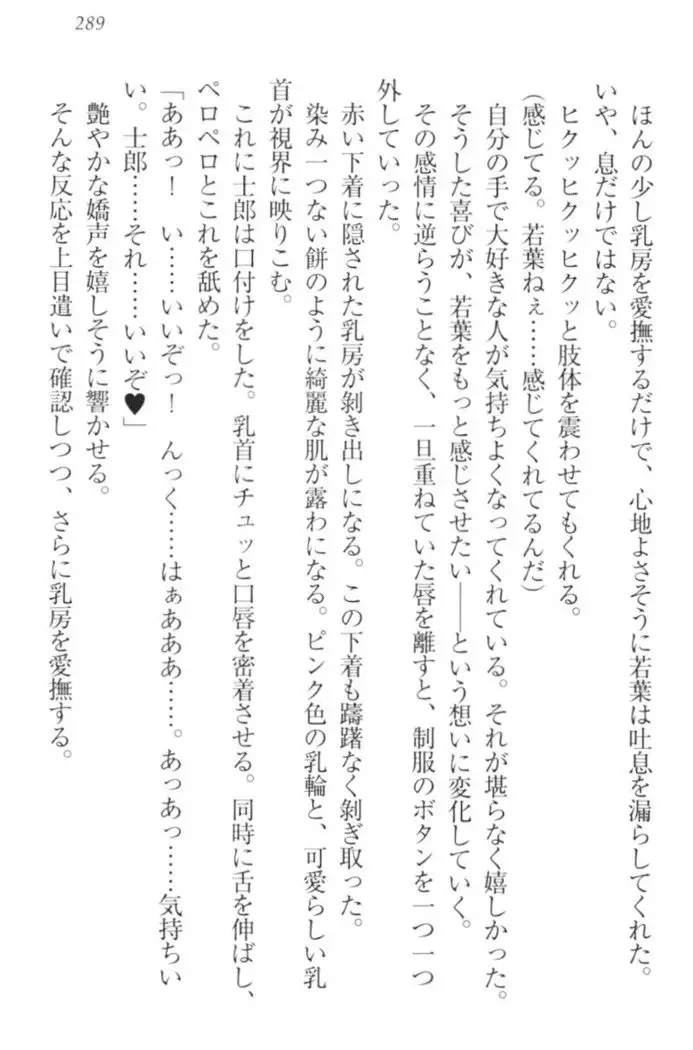 289
ほんの少し乳房を愛撫するだけで、心地よさそうに若葉は吐息を漏らしてくれた。
いや、息だけではない。
ヒクッヒクッヒクッと肢体を震わせてもくれる。
(感じてる。若葉ねぇ……感じてくれてるんだ)
自分の手で大好きな人が気持ちよくなってくれている。それが堪らなく嬉しかった。
そうした喜びが、若葉をもっと感じさせたい――という想いに変化していく。
その感情に逆らうことなく、一旦重ねていた唇を離すと、制服のボタンを一つ一つ
外していった。
赤い下着に隠された乳房が剥き出しになる。この下着も躊躇なく剥ぎ取った。
染み一つない餅のように綺麗な肌が露わになる。ピンク色の乳輪と、可愛らしい乳
首が視界に映りこむ。
これに士郎は口付けをした。乳首にチュッと口唇を密着させる。同時に舌を伸ばし、
ペロペロとこれを舐めた。
「ああっ！　い……いいぞっ！　んっく……はぁあああ……。あっあっ……気持ちい
い。士郎……それ……いいぞ♥」
艶やかな嬌声を嬉しそうに響かせる。
そんな反応を上目遣いで確認しつつ、さらに乳房を愛撫する。